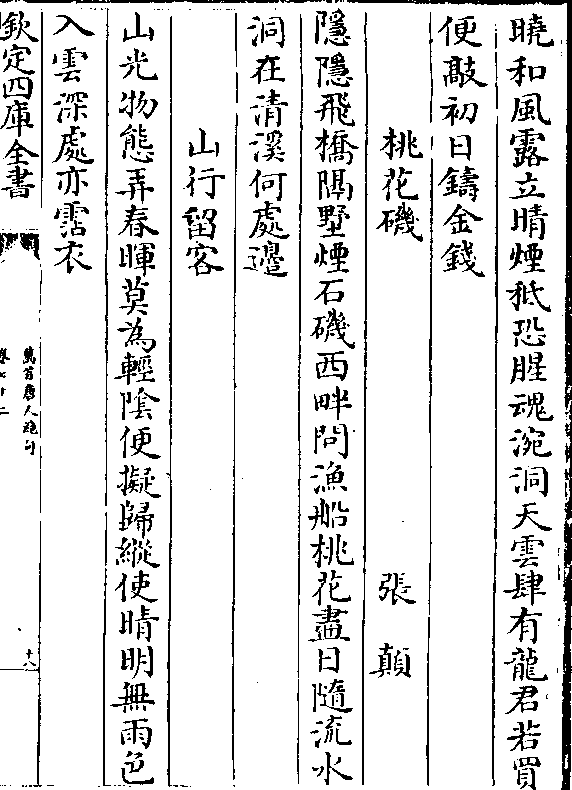 曉和風露立晴煙秪恐腥魂涴洞天雲肆有龍君若買
便敲初日鑄金錢
桃花磯 張顛
隱隱飛橋隔墅煙石磯西畔問漁船桃花盡日隨流水
洞在清溪何處邊
山行留客
山光物態弄春暉莫為輕陰便擬歸縱使晴明無雨色
入雲深處亦霑衣
欽定四庫全書
萬首唐人絶句
卷七十二
十八